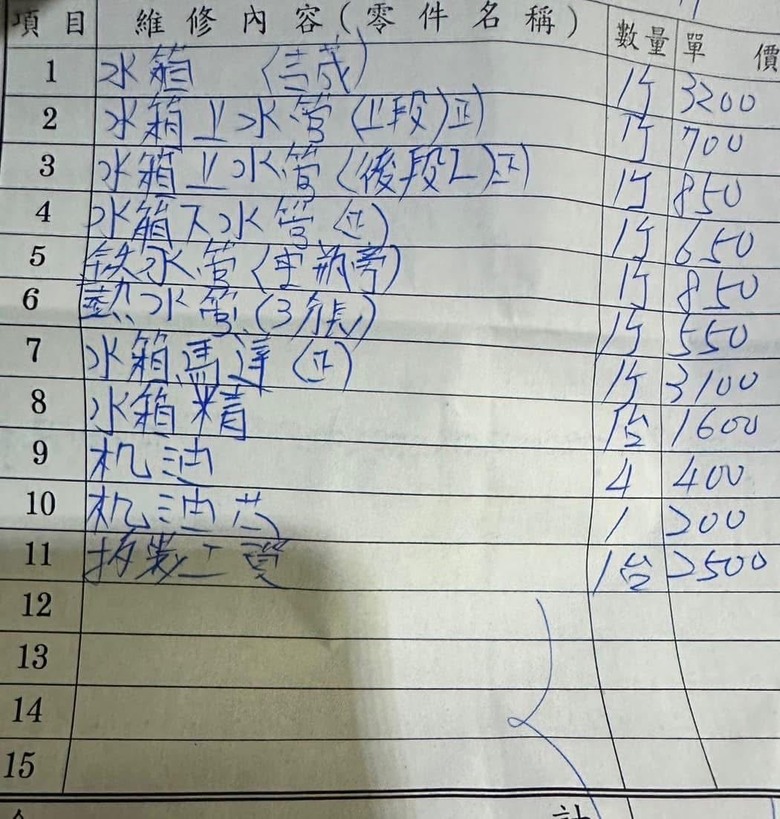 項目 維修內容(零件名稱) 數量 單價
1 水箱 (吉茂) 1只 3200
2 水箱上水管(上段)正 1只 700
3 水箱上水管(後段L)正 1只 850
4 水箱下水管(正) 1只 650
5 鉄水管(電瓶旁) 1只 850
6 熱水管(3角長) 1只 550
7 水箱馬達(正) 1只 3100
8 水箱精 1台 1600
9 机油 4 400
10 机油芯 1 200
11 拆裝工資 1台 2500
12
13
14
15
計